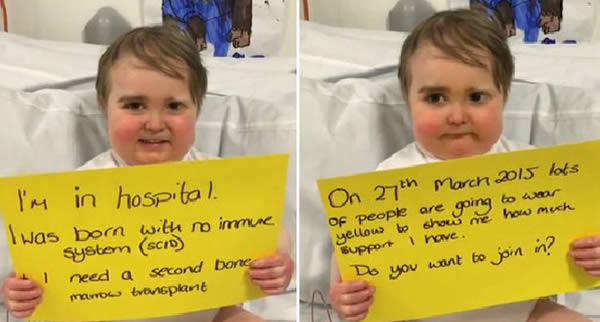 I'm in hospital.
I was born with no immune
system (SCID)
I need a second bone
marrow transplant
On 27th March 2015 lots
of people are going to wear
yellow to show me how much
support I have.
Do you want to join in?